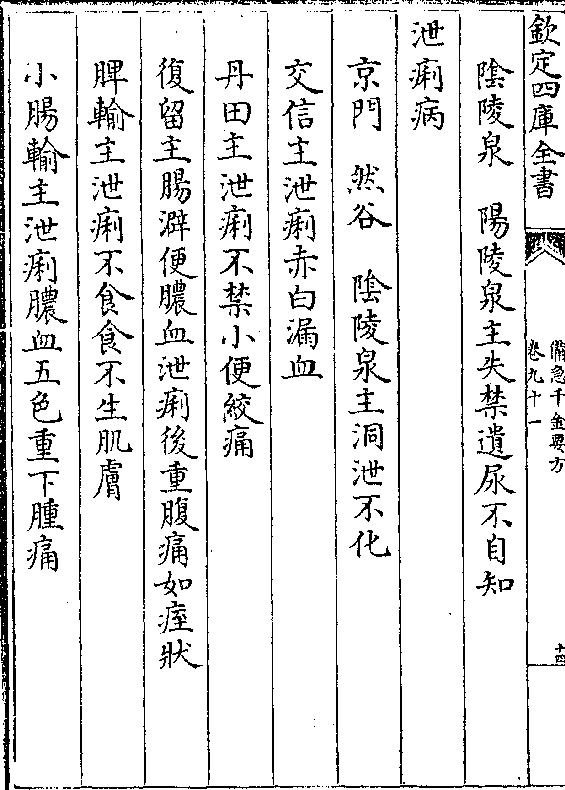 欽定四庫全書
備急千金要方
卷九十一
十四
陰陵泉 陽陵泉主失禁遺尿不自知
泄痢病
京門 然谷 陰陵泉主洞泄不化
交信主泄痢赤白漏血
丹田主泄痢不禁小便絞痛
復留主腸澼便膿血泄痢後重腹痛如痓狀
脾輸主泄痢不食食不生肌膚
小腸輸主泄痢膿血五色重下腫痛